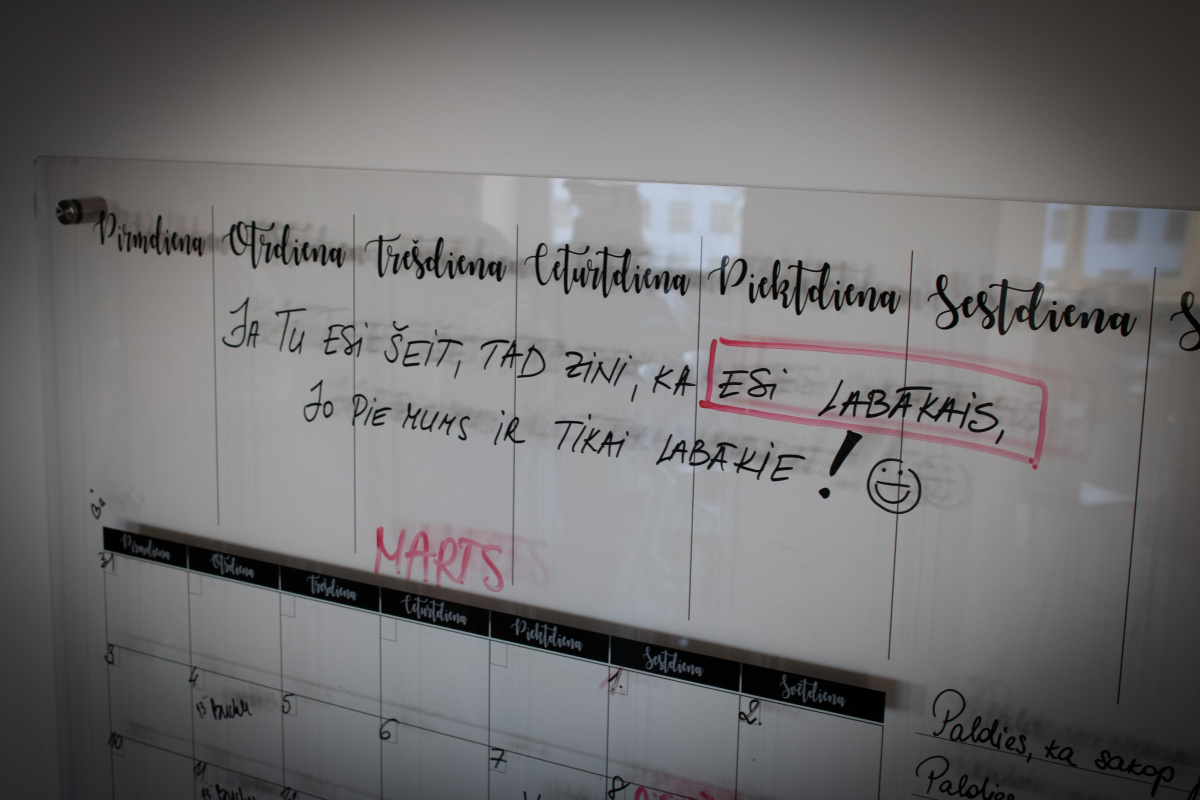 Pirmdiena Otrdiena Trešdiena Ceturtdiena Piektdiena Sestdiena S
JA TU ESi ŠEIT, TAD ZiNi, KA ESi LABĀKAiS,
JO PiE MUMS iR TiKAi LABĀKiE!
MARTS
Pirmdiena Otrdiena Trešdiena Ceturtdiena Piektdiena Sestdiena Svētdiena
31 1. 2.
3 4 5 6 7 8
10 11
Paldies, ka sakop
Paldies